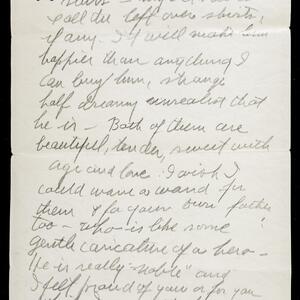 call the left over shirts,
if any. It will make him
happier than anything I
can buy him, strange
half dreamy unrealist that
he is - Both of them are
beautiful, tender, sweet with
age and love. I wish I
could wave a wand for
them & for your own father
too - who is like some
gentle caricature of a hero -
He is really "noble" and
I feel proud of you or for you